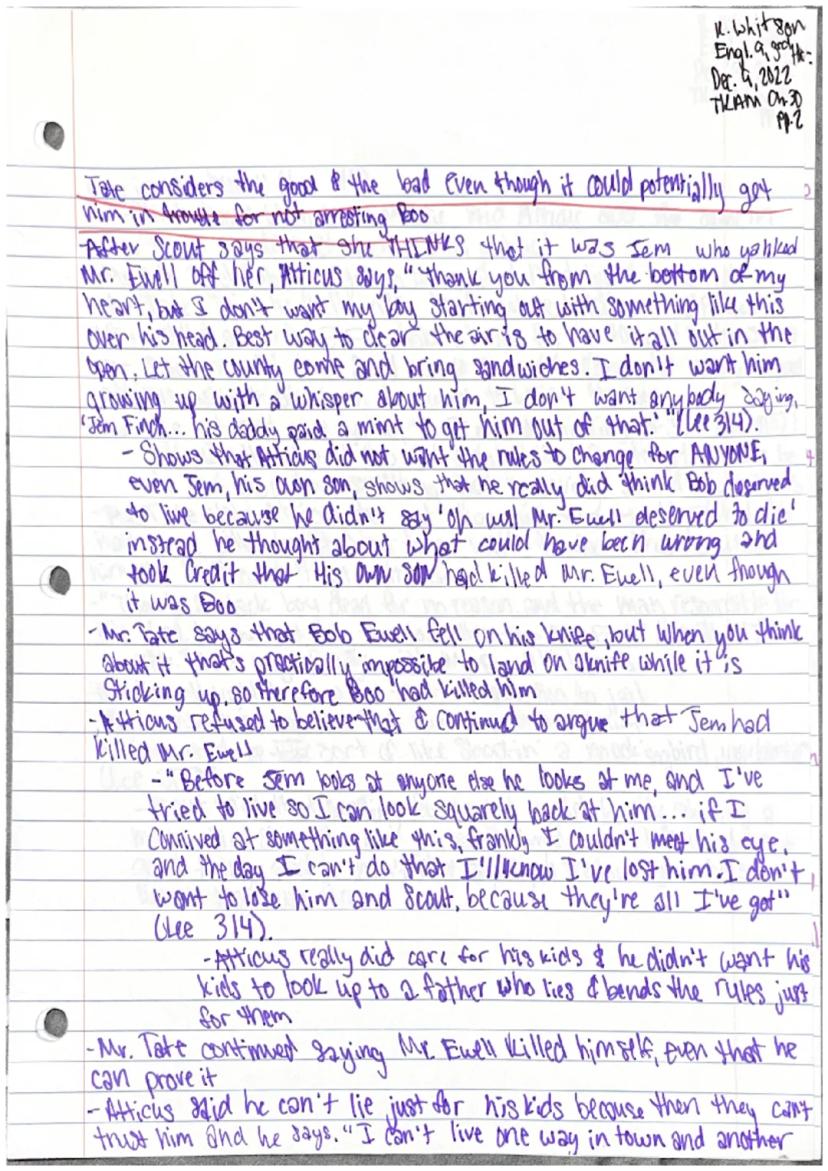 K. Whitson
Engl. 9, 3rd Hr:
Dec. 9, 2022
TKAM Ch 30
pp. 2
Tate considers the good & the bad even though it could potentially get
him in trouble for not arresting Boo
-After Scout says that she THINKS that it was Jem who yanked
Mr. Ewell off her, Atticus says, "thank you from the bottom of my
heart, but I don't want my boy starting out with something like this
over his head. Best way to clear the air is to have it all out in the
open. Let the county come and bring sandwiches. I don't want him
growing up with a whisper about him, I don't want anybody saying,
'Jem Finch... his daddy paid a mint to get him out of that.'" (Lee 314).
- Shows that Atticus did not want the rules to change for ANYONE,
even Jem, his own son, shows that he really did think Bob deserved
to live because he didn't say 'oh well Mr. Ewell deserved to die'
instead he thought about what could have been wrong and
took credit that His OWN SON had killed Mr. Ewell, even though
it was Boo
-Mr. Tate says that Bob Ewell fell on his knife, but when you think
about it that's practically impossible to land on a knife while it is
sticking up, so therefore Boo had killed him
-Atticus refused to believe that & continued to argue that Jem had
killed Mr. Ewell
-"Before Jem looks at anyone else he looks at me, and I've
tried to live so I can look squarely back at him... if I
connived at something like this, frankly I couldn't meet his eye,
and the day I can't do that I'll know I've lost him. I don't
want to lose him and Scout, because they're all I've got"
(Lee 314).
-Atticus really did care for his kids & he didn't want his
kids to look up to a father who lies & bends the rules just
for them
-Mr. Tate continued saying Mr. Ewell killed himself, even that he
can prove it
-Atticus said he can't lie just for his kids because then they can't
trust him and he says. "I can't live one way in town and another